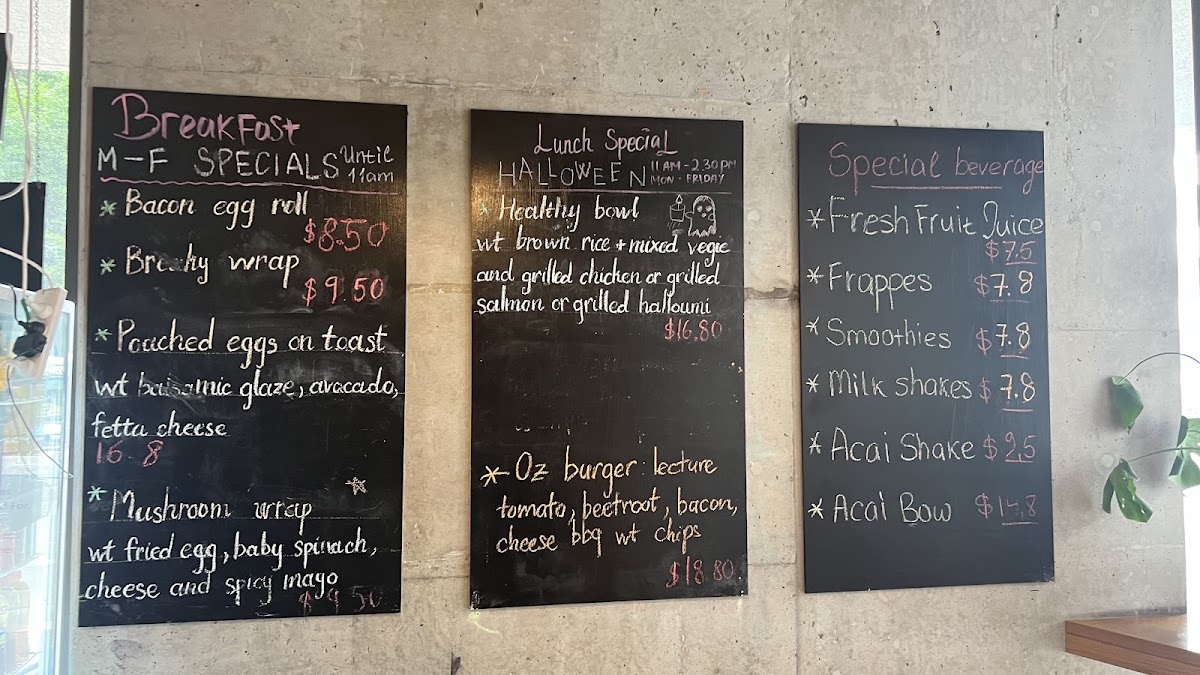 Breakfast
M-F SPECIALS Until 11am
* Bacon egg roll
$8.50
* Breaky wrap
$9.50
* Poached eggs on toast
wt balsamic glaze, avocado,
fetta cheese
16 8
* Mushroom wrap
wt fried egg, baby spinach,
cheese and spicy mayo
$9.50
Lunch Special
HALLOWEEN 11AM-2.30PM
MON-FRIDAY
* Healthy bowl
wt brown rice + mixed vegie
and grilled chicken or grilled
salmon or grilled halloumi
$16.80
* Oz burger: lecture
tomato, beetroot, bacon,
cheese bbq wt chips
$18.80
Special beverage
* Fresh Fruit Juice
$7.5
* Frappes $7.8
* Smoothies $7.8
* Milk shakes $7.8
* Acai Shake $9.5
* Acai Bow $14.8